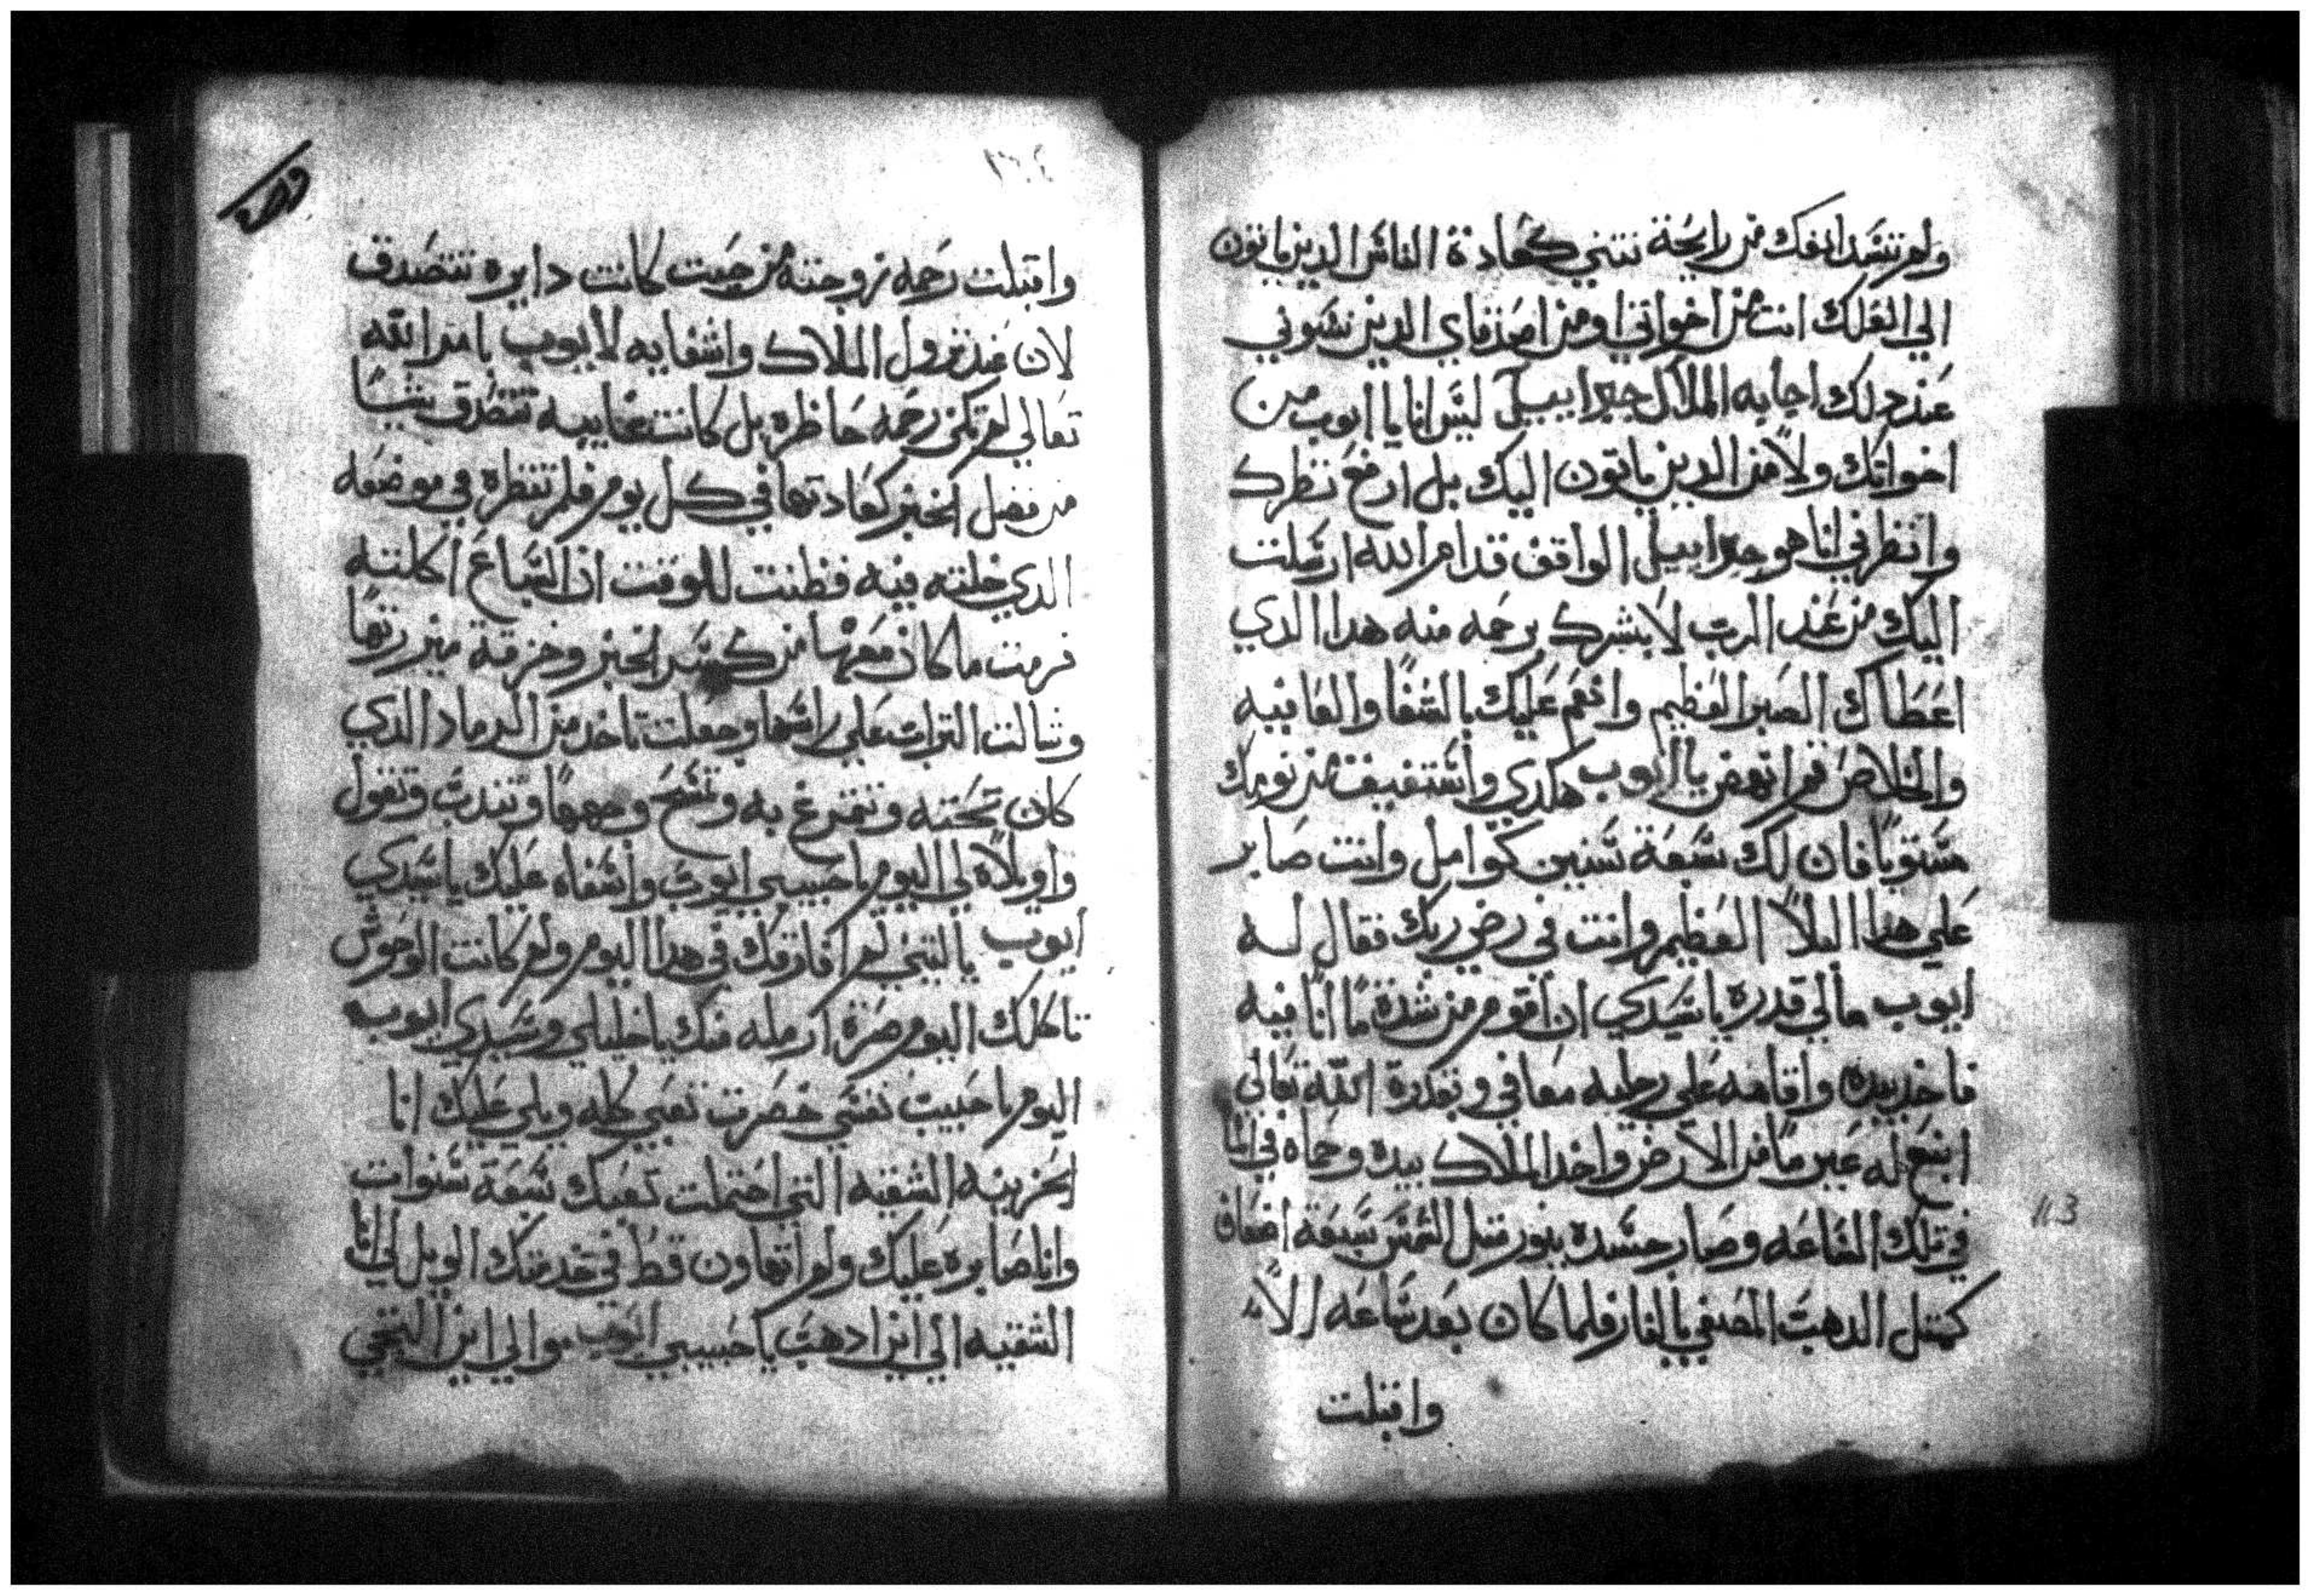 ولم تسد انفك من رايحة نتني كعادة الناس الدين ياتون
الي العلك انت من اخواتي او من اصدقاي الدين نسوني
عند دلك اجابه الملاك جبراييل ليس انا يا ايوب من
اخواتك ولا من الدين ياتون اليك بل ارفع نظرك
وانظرني انا هو جبراييل الواقف قدام الله ارسلت
اليك من عند الرب لابشرك برحمه منه هدا الدي
اعطاك الصبر العظيم وانعم عليك بالشفا والعافيه
والخلاص قم انهض يا ايوب هكدي واستفيق من نومك
مستويا فان لك تسعة سنين كوامل وانت صابر
علي هدا البلا العظيم وانت في رضي ربك فقال له
ايوب مالي قدره يا سيدي ان اقوم من شدة ما انا فيه
فاخد بيده واقامه علي رجليه معافي وبقدرة الله تعالي
انبع له عين ما من الارض واخد الملاك بيده وحماه في الما
في تلك الساعه وصار جسده بنور مثل الشمس سبعة اضعاف
كمثل الدهب المصفي بالنار فلما كان بعد ساعه الا
واقبلت
١٦٤
واقبلت رحمه زوجته من حيت كانت دايره تتصدق
لان عند نزول الملاك واشفايه لايوب بامر الله
تعالي لم تكن رحمه حاظره بل كانت غايبه تتصدق شيا
من فضل الخبز كعادتها في كل يوم فلم تنظره في موضعه
الدي خلته فيه فظنت للوقت ان السباع اكلته
فرمت ما كان معها من كسر الخبز وخزقة ميزرتها
وشالت التراب علي راسها وجعلت تاخد من الرماد الدي
كان تحته وتتمرغ به وتسخ وجهها وتندب وتقول
واويلاه لي اليوم يا حبيبي ايوب واسفاه عليك يا سيدي
ايوب يا ليتني لم افارقك في هدا اليوم ولم كانت الوحوش
تاكلك اليوم صرة ارمله منك يا خليلي وسيدي ايوب
اليوم يا حبيب نفسي خضرت تعبي كله ويلي عليك انا
الحزينه الشقيه التي احتملت تعبك تسعة سنوات
وانا صابره عليك ولم اتهاون قط في خدمتك الويل لي انا
الشقيه الي اين ادهب يا حبيبي ايوب والي اين التجي